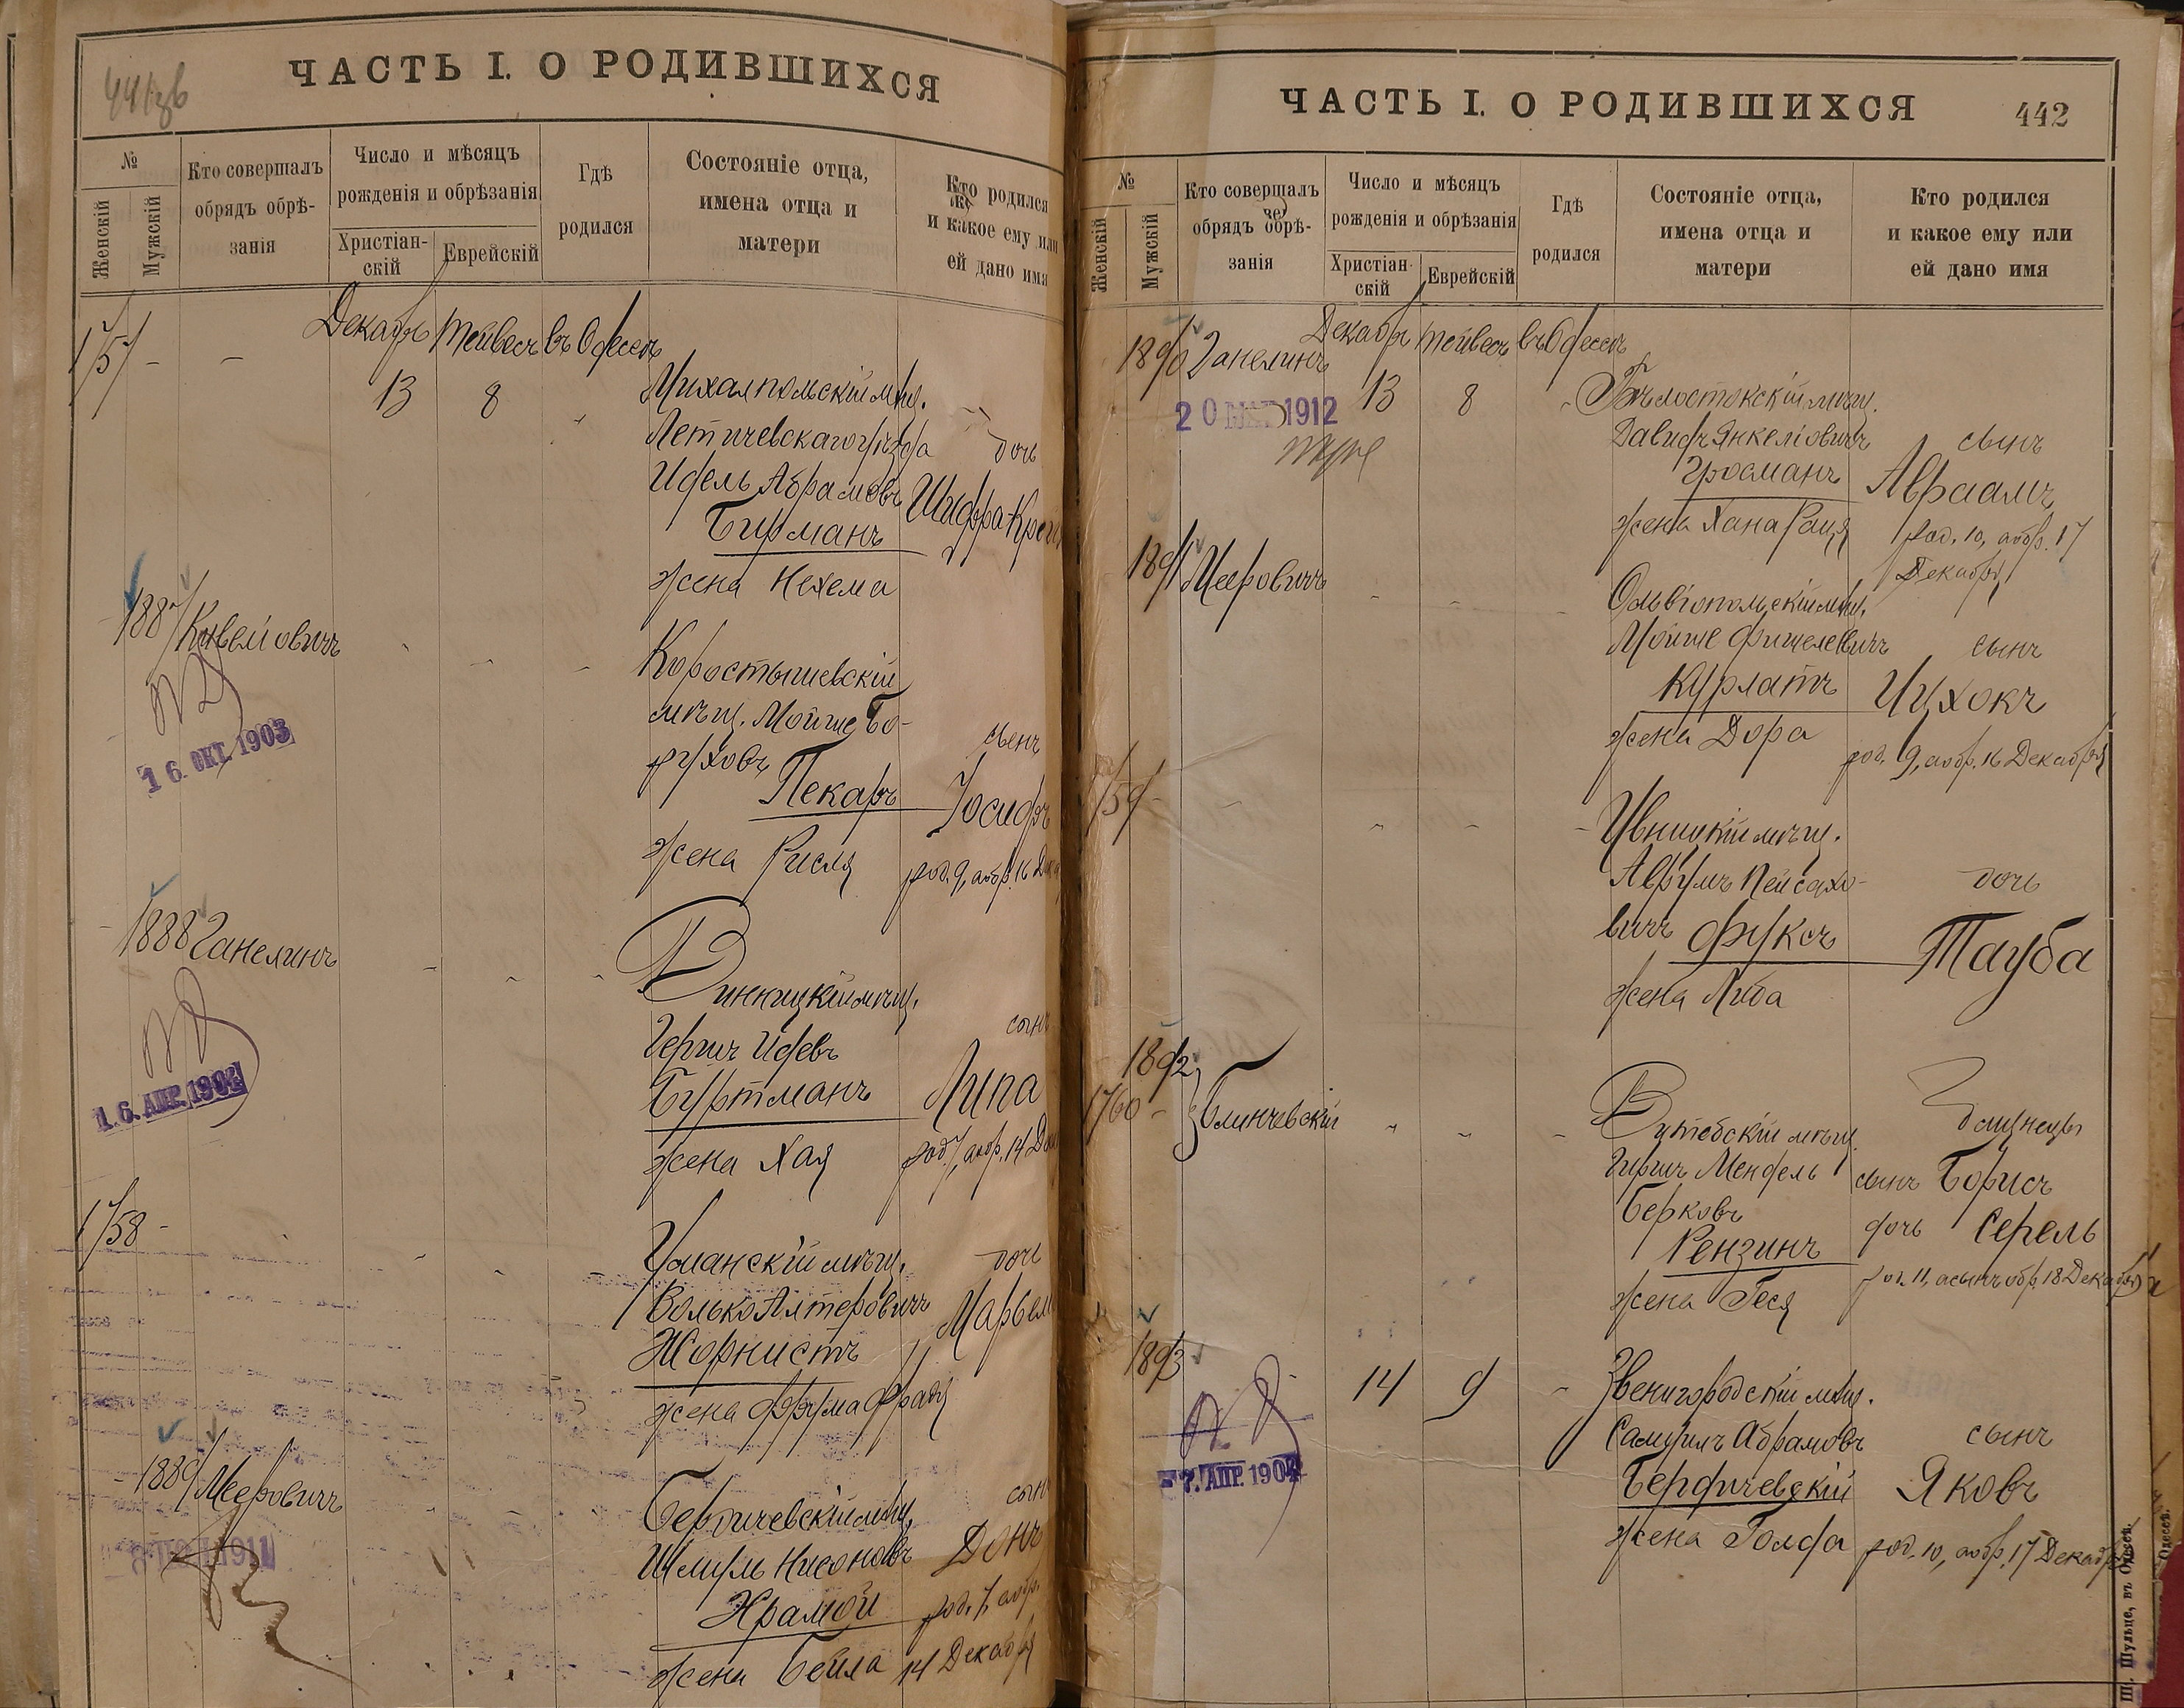 ЧАСТЬ I. О РОДИВШИХСЯ
№
Женскій
Мужскій
Кто совершалъ
обрядъ обрѣ-
занія
Число и мѣсяцъ
рожденія и обрѣзанія
Христіан-
скій
Еврейскій
Гдѣ
родился
Состояніе отца,
имена отца и
матери
Кто родился
и какое ему или
ей дано имя
Декабр Тейвесъ въ Одессѣ
1757 - -
13 8
Михалпольскій мѣщ.
Летичевскаго уѣзда
дочь
Идель Абрамовъ
Шифра
Бирманъ
жена Нехема
1887 Кивеліовичъ
16. ОКТ. 1903
Коростышевскій
мѣщ. Мойше Бо-
руховъ
сынъ
Пекаръ
Іосифъ
жена Рисля
род. 9, а обр. 16
1888 Ганелинъ
16. АПР. 1904
Винницкій мѣщ.
Гершъ Идевъ
сынъ
Буртманъ
Липа
жена Хая
род. 7, а обр. 14
1758 -
Уманскій мѣщ.
дочь
Волько Алтеровичъ
Жорнистъ
жена Фрума Фрада
1889 Мееровичъ
1911
Бердичевскій мѣщ.
сынъ
Шмуль Нисоновъ
Донъ
Храмой
род. 7, а обр.
жена Бейла
14 Декабря
ЧАСТЬ I. О РОДИВШИХСЯ
442
№
Женскій
Мужскій
Кто совершалъ
обрядъ обрѣ-
занія
Число и мѣсяцъ
рожденія и обрѣзанія
Христіан-
скій
Еврейскій
Гдѣ
родился
Состояніе отца,
имена отца и
матери
Кто родился
и какое ему или
ей дано имя
Декабр Тейвесъ въ Одессѣ
1890 Ганелинъ
13 8
20 МАР 1912
Бѣлостокскій мѣщ.
Давидъ Янкеліовичъ
сынъ
Гросманъ
Авраамъ
жена Хана Рація
род. 10, а обр. 17
Декабря
1891 Мееровичъ
Ольвіопольскій мѣщ.
Мойше Фишелевичъ
сынъ
Курлатъ
Ицхокъ
жена Дора
род. 9, а обр. 16 Декабря
1759 -
мѣщ.
Аврумъ Пейсахо-
дочь
вичъ Фуксъ
Тауба
жена Либа
1892
1760 -
Блинчевскій
Витебскій мѣщ.
близнецы
Гиршъ Мендель
сынъ Борисъ
Берковъ
дочь Серель
Рензинъ
род. 11, а сынъ обр. 18 Декабря
жена Геся
1893
14 9
7. АПР. 1904
Звенигородскій мѣщ.
Самуилъ Абрамовъ
сынъ
Бердичевскій
Яковъ
жена Голда
род. 10, а обр. 17 Декабр
Шульце, въ Одессѣ.